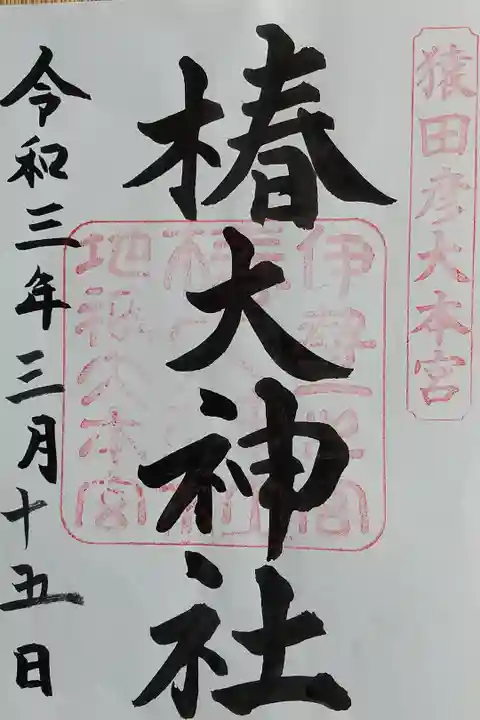 猿田彦大本宮
椿大神社
伊勢一之宮
地祇大本宮
令和三年三月十五日